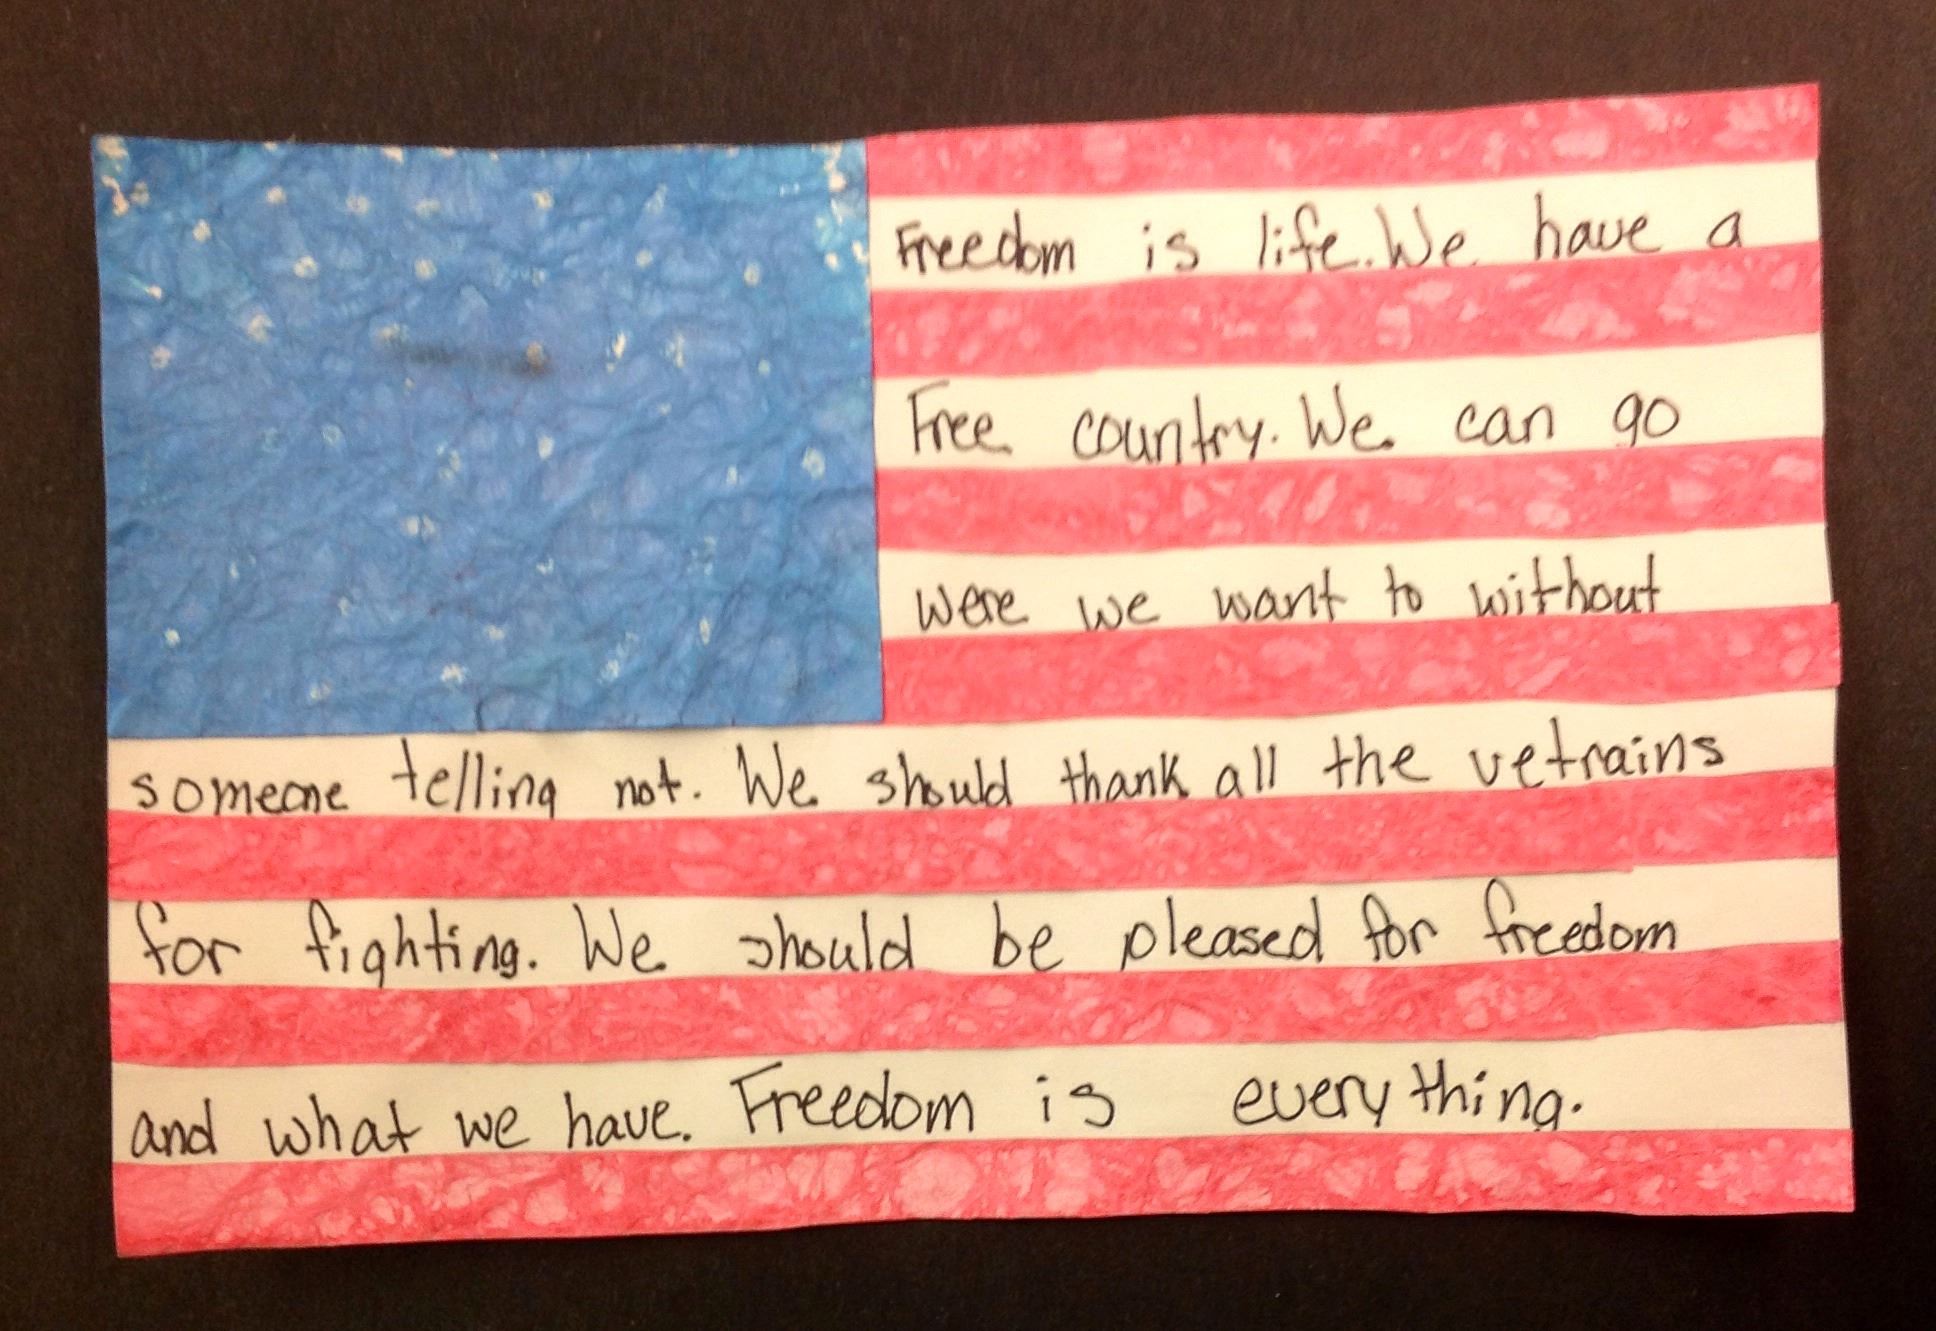 Freedom is life. We have a
Free country. We can go
were we want to without
someone telling not. We should thank all the vetrains
for fighting. We should be pleased for freedom
and what we have. Freedom is everything.